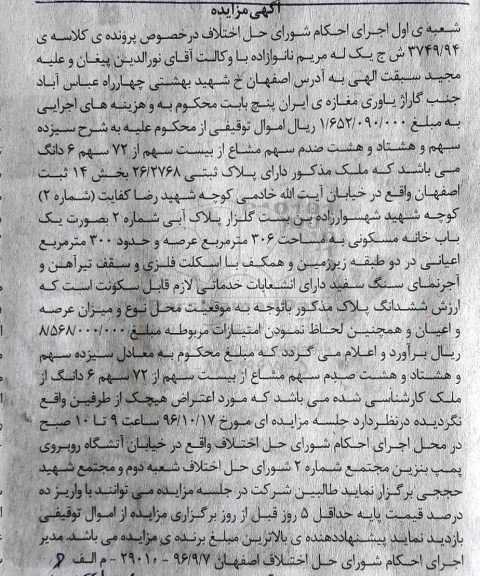 آگهی مزایده
شعبه ی اول اجرای احکام شورای حل اختلاف درخصوص پرونده ی کلاسه ی
۳۷۴۹/۹۴ ش ج یک له مریم نانوازاده با وکالت آقای نورالدین پیغان و علیه
مجید سبقت الهی به آدرس اصفهان خ شهید بهشتی چهارراه عباس آباد
جنب گاراژ یاوری مغازه ی ایران پنچ بابت محکوم به و هزینه های اجرایی
به مبلغ ۱/۶۵۲/۰۹۰/۰۰۰ ریال اموال توقیفی از محکوم علیه به شرح سیزده
سهم و هشتاد و هشت صدم سهم مشاع از بیست سهم از ۷۲ سهم ۶ دانگ
می باشد که ملک مذکور دارای پلاک ثبتی ۲۶/۲۷۶۸ بخش ۱۴ ثبت
اصفهان واقع در خیابان آیت الله خادمی کوچه شهید رضا کفایت (شماره ۲)
کوچه شهید شهسوارزاده بن بست گلزار پلاک آبی شماره ۲ بصورت یک
باب خانه مسکونی به مساحت ۳۰۶ مترمربع عرصه و حدود ۳۰۰ مترمربع
اعیانی در دو طبقه زیرزمین و همکف با اسکلت فلزی و سقف تیرآهن و
آجرنمای سنگ سفید دارای انشعابات خدماتی لازم قابل سکونت است که
ارزش ششدانگ پلاک مذکور باتوجه به موقعیت محل نوع و میزان عرصه
و اعیان و همچنین لحاظ نمودن امتیازات مربوطه مبلغ ۸/۵۶۸/۰۰۰/۰۰۰
ریال برآورد و اعلام می گردد که مبلغ محکوم به معادل سیزده سهم
و هشتاد و هشت صدم سهم مشاع از بیست سهم از ۷۲ سهم ۶ دانگ از
ملک کارشناسی شده می باشد که مورد اعتراض هیچک از طرفین واقع
نگردیده درنظردارد جلسه مزایده ای مورخ ۹۶/۱۰/۱۷ ساعت ۹ تا ۱۰ صبح
در محل اجرای احکام شورای حل اختلاف واقع در خیابان آتشگاه روبروی
پمپ بنزین مجتمع شماره ۲ شورای حل اختلاف شعبه دوم و مجتمع شهید
حججی برگزار نماید طالبین شرکت در جلسه مزایده می توانند با واریز ده
درصد قیمت پایه حداقل ۵ روز قبل از روز برگزاری مزایده از اموال توقیفی
بازدید نماید پیشنهاددهنده ی بالاترین مبلغ برنده ی مزایده می باشد. مدیر
اجرای احکام شورای حل اختلاف اصفهان ۹۶/۹/۷ - ۲۹۰۱۰ - م الف